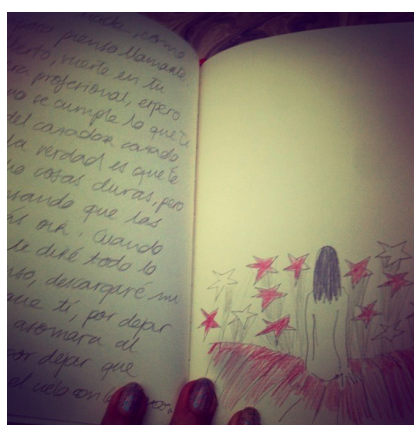 como
pienso llamarte
suerte en tu
profesional, espero
no se cumpla lo que te
del cazador cazado
la verdad es que te
cosas duras, pero
que las
oír. Cuando
le diré todo lo
descargaré mi
ti, por dejar
asomara al
por dejar que
el cielo con